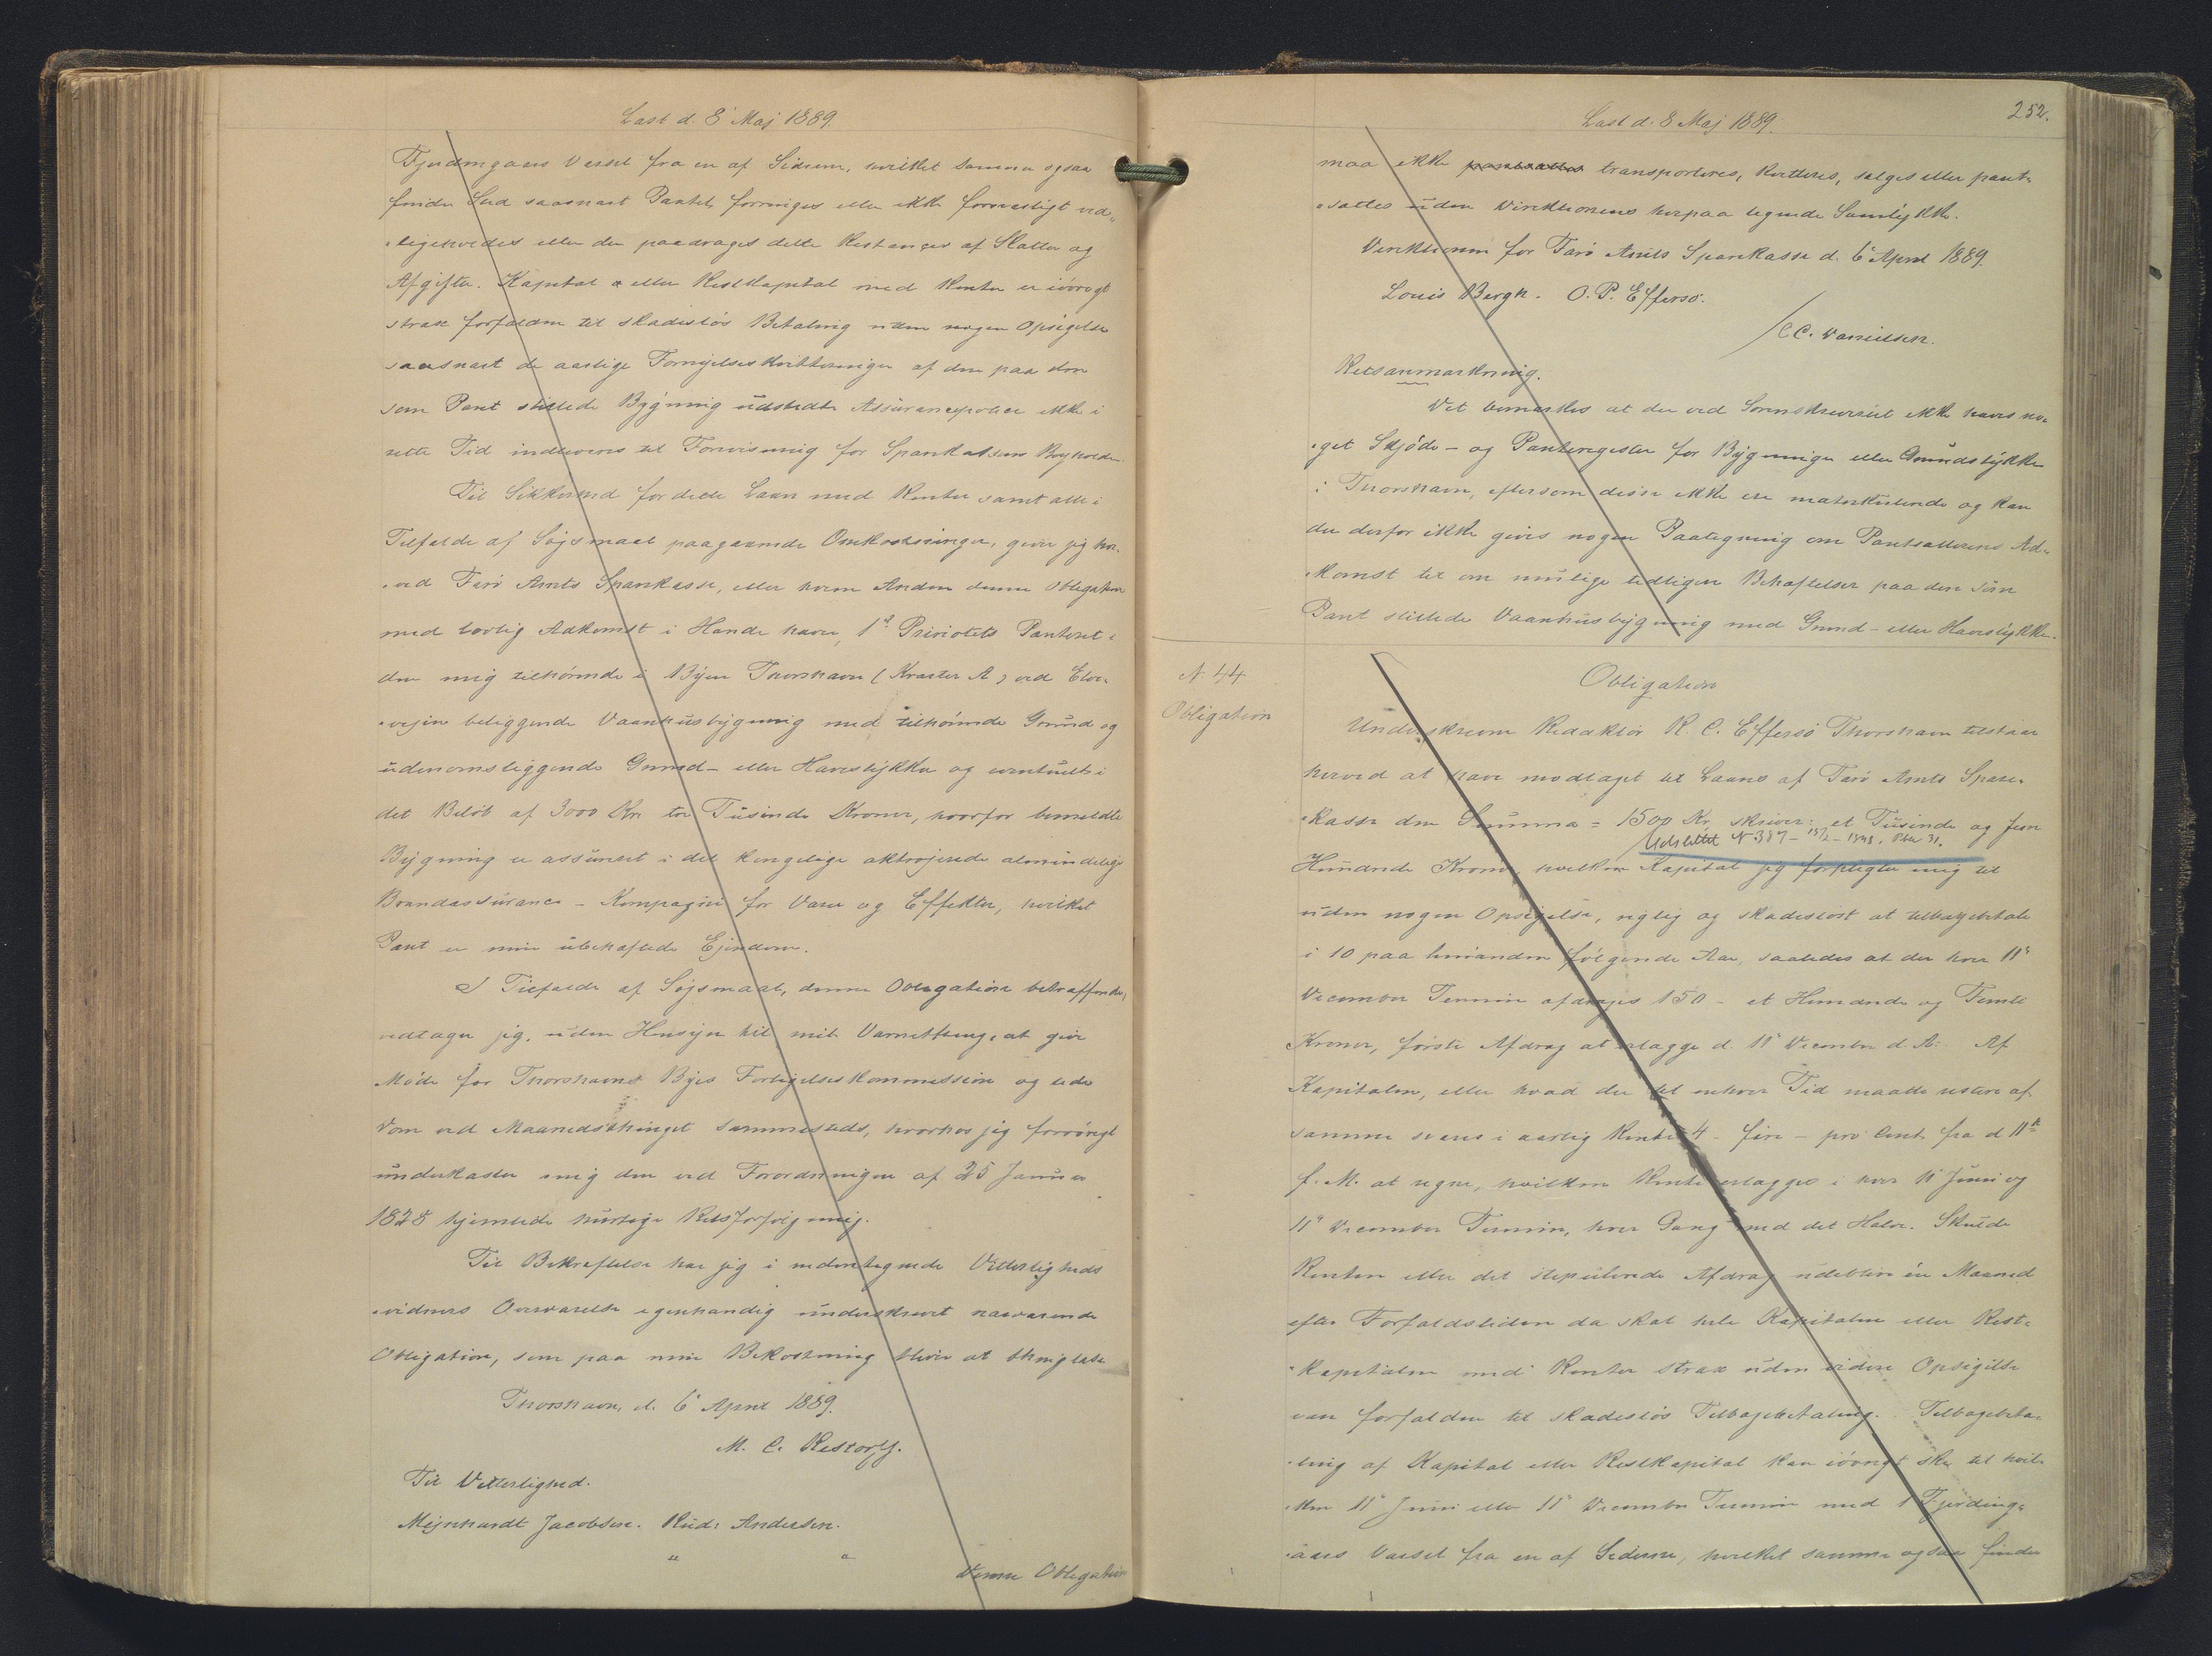 Læst d. 8' Maj 1889.
Fjerdingaars Varsel fra en af Siderne, hvilket samme ogsaa
finder Sted saasnart Pantet forringes eller ikke forsvarligt ved-
-ligeholdes eller der paadrages dette Restancer af Skatter og
Afgifter. Kapital eller Restkapital med Renter er iövrigt
strax forfalden til skadeslös Betaling uden nogen Opsigelse
saasnart de aarlige Fornyelseskvitteringer af den paa den
som Pant stillede Bygning udstedte Assurancepolice ikke i
rette Tid indleveres til Forevisning for Sparekassens Bogholder.
Til Sikkerhed for dette Laan med Renter samt alle i
Tilfælde af Søgsmaal paagaaende Omkostninger, giver jeg her-
-ved Færö Amts Sparekasse, eller hvem Anden denne Obligation
med lovlig Adkomst i Hænde haver, 1ste Prioritets Panteret i
den mig tilhörende i Byen Thorshavn (Kvarter A) ved Elve-
-vejen beliggende Vaanhusbygning med tilhörende Grund og
udenomsliggende Grund- eller Havestykke og eventuelt i
det Belöb af 3000 Kr. tre Tusinde Kroner, hvorfor bemeldte
Bygning er assureret i det kongelige oktrojerede almindelige
Brandassurance-Kompagni for Varer og Effekter, hvilket
Pant er min ubehæftede Ejendom.
I Tilfælde af Søgsmaal, denne Obligation betræffende,
vedtager jeg, uden Hensyn til mit Værnething, at give
Möde for Thorshavns Byes Forligelseskommission og lide
Dom ved Maanedsthinget sammesteds, hvorhos jeg forövrigt
underkaster mig den ved Forordningen af 25 Januar
1828 hjemlede hurtige Retsforfölgning.
Til Bekræftelse har jeg i nedentegnede Vitterligheds
-vidners Overværelse egenhændig underskrevet nærværende
Obligation, som paa min Bekostning bliver at thinglæse
Thorshavn, d. 6' April 1889.
M. C. Restorff.
Til Vitterlighed.
Mejnhardt Jacobsen. Rud: Andersen.
" "
Denne Obligation
Læst d. 8 Maj 1889.
252.
maa ikke pantsættes transporteres, kvitteres, sælges eller pant-
-sættes uden Direktionens herpaa tegnede Samtykke.
Direktionen for Færö Amts Sparekasse d. 6' April 1889.
Louis Bergh. O. P. Effersö.
/ C. C. Danielsen.
Retsanmærkning.
Det bemærkes at der ved Sorenskriveriet ikke haves no-
-get Skjöde- og Panteregister for Bygninger eller Grundstykker
i Thorshavn, eftersom disse ikke ere matrikulerede og kan
der derfor ikke gives nogen Paategning om Pantsætterens Ad-
-komst til om mulige tidligere Behæftelser paa den som
Pant stillede Vaanhusbygning med Grund- eller Havestykke.
N. 44
Obligation
Obligation
Underskrevne Redaktör R. C. Effersö Thorshavn tilstaar
herved at have modtaget til Laans af Færö Amts Spare-
-kasse den Summa = 1500 Kr, skriver: et Tusinde og Fem
Udslettet N 387 - 13/2 - 1943. Ptbr 31.
Hundrede Kroner, hvilken Kapital jeg forpligter mig til
uden nogen Opsigelse, rigtig og skadeslöst at tilbagebetale
i 10 paa hinanden fölgende Aar, saaledes at der hver 11'
December Termin afdrages 150 - et Hundrede og Femti
Kroner, förste Afdrag at erlægge d. 11' December d. A. Af
Kapitalen, eller hvad der til enhver Tid maatte restere af
samme svares i aarlig Rente 4 - fire - pro Cent fra d 11te
f. M. at regne, hvilken Rente erlægges i hver 11' Juni og
11' December Termin, hver Gang med det Halve. Skulde
Renten eller det stipulerede Afdrag udeblive én Maaned
efter Forfaldstiden da skal hele Kapitalen eller Rest-
-kapitalen med Renter strax uden videre Opsigelse
være forfalden til skadeslös Tilbagebetaling. Tilbagebeta-
-ling af Kapital eller Restkapital kan iövrigt ske til hvil-
-ken 11' Juni eller 11' December Termin med 1 Fjerding-
-aars Varsel fra en af Siderne, hvilket samme ogsaa finder